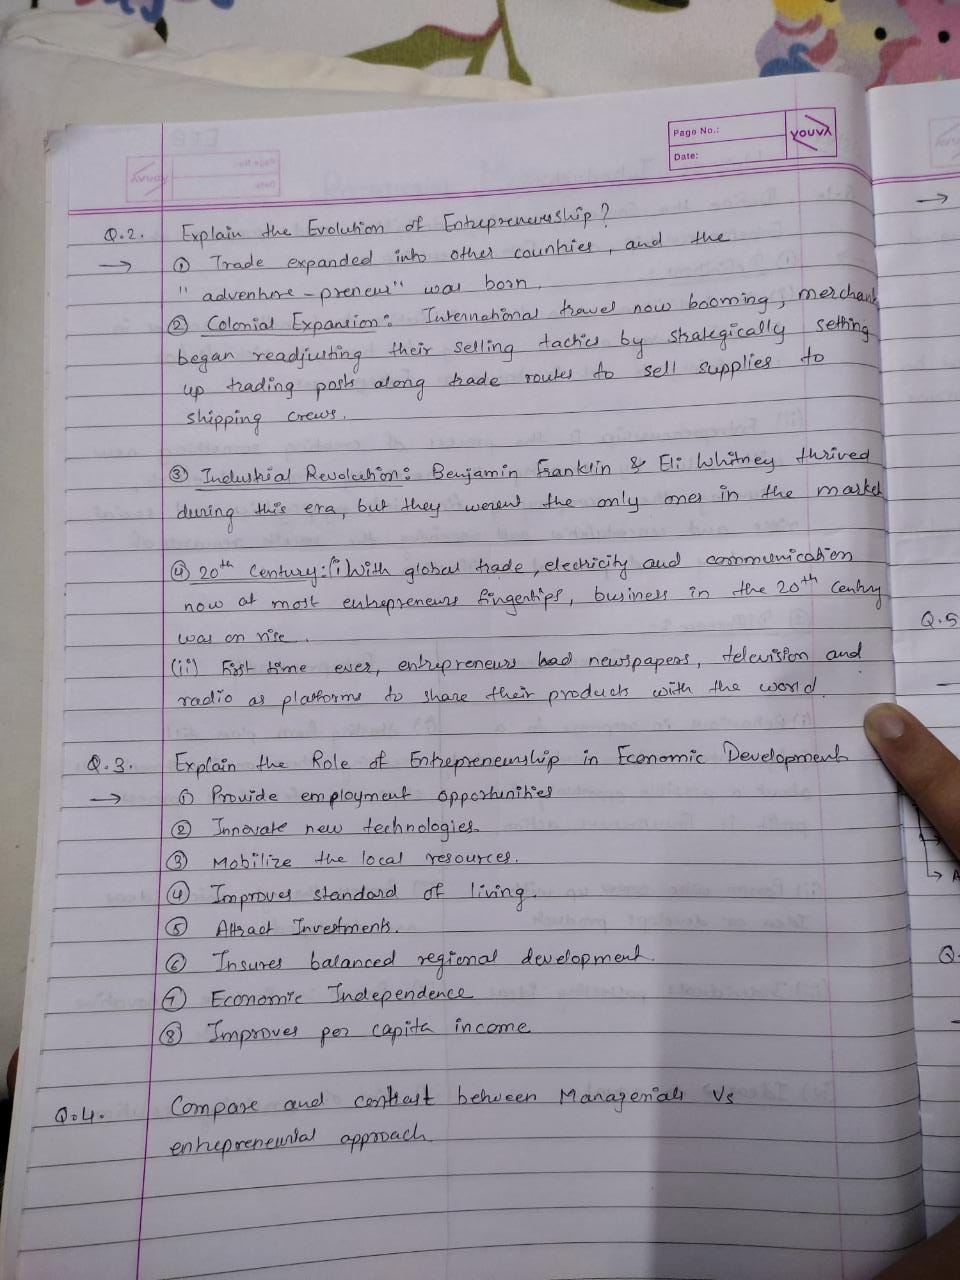 Page No.:
Date:
YOUVA
Q.2. Explain the Evolution of Entrepreneurship?
→ ① Trade expanded into other countries, and the
"adventure-preneur" was born.
② Colonial Expansion: International travel now booming, merchant
began readjusting their selling tactics by strategically setting
up trading posts along trade routes to sell supplies to
shipping crews.
③ Industrial Revolution: Benjamin Franklin & Eli Whitney thrived
during this era, but they werent the only ones in the market
④ 20th Century: (i) With global trade, electricity and communication
now at most entrepreneurs fingertips, business in the 20th Century
was on rise.
(ii) First time ever, entrepreneurs had newspapers, television and
radio as platforms to share their products with the world.
Q.3. Explain the Role of Entrepreneurship in Economic Development
→ ① Provide employment opportunities
② Innovate new technologies.
③ Mobilize the local resources.
④ Improves standard of living.
⑤ Attract Investments.
⑥ Insures balanced regional development.
⑦ Economic Independence
⑧ Improves per capita income
Q.4. Compare and contrast between Managerial Vs
entrepreneurial approach.
→
Q.5
Q.